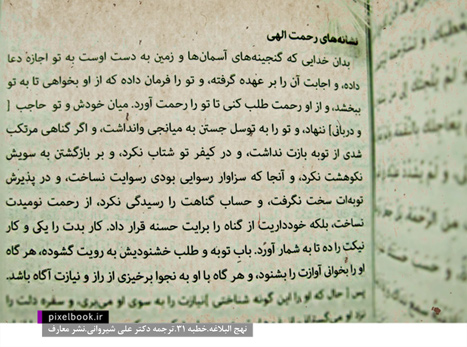 نشانه‌های رحمت الهی
بدان خدایی که گنجینه‌های آسمان‌ها و زمین به دست اوست به تو اجازه دعا
داده، و اجابت آن را بر عهده گرفته، و تو را فرمان داده که از او بخواهی تا به تو
ببخشد، و از او رحمت طلب کنی تا تو را رحمت آورد. میان خودش و تو حاجب [
و دربانی] ننهاد، و تو را به توسل جستن به میانجی وانداشت، و اگر گناهی مرتکب
شدی از توبه بازت نداشت، و در کیفر تو شتاب نکرد، و بر بازگشتن به سویش
نکوهشت نکرد، و آنجا که سزاوار رسوایی بودی رسوایت نساخت، و در پذیرش
توبه‌ات سخت نگرفت، و حساب گناهت را رسیدگی نکرد، از رحمت نومیدت
نساخت، بلکه خودداریت از گناه را برایت حسنه قرار داد. کار بدت را یکی و کار
نیکت را ده تا به شمار آورد. باب توبه و طلب خشنودیش به رویت گشوده، هر گاه
او را بخوانی آوازت را بشنود، و هر گاه با او به نجوا برخیزی از راز و نیازت آگاه باشد.
پس [ حال که او را این گونه شناختی ] نیازت را به سوی او می‌بری، و سفره دلت را
pixelbook.ir
نهج البلاغه.خطبه ۳۱.ترجمه دکتر علی شیروانی.نشر معارف